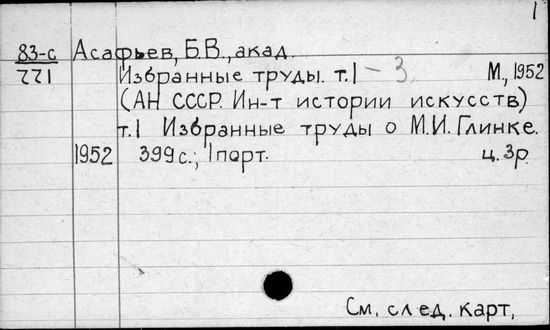 1
83-с Асафьев, Б.В., акад.
221 Избранные труды. т.1 – 3. М., 1952
(АН СССР. Ин-т истории искусств)
т.1 Избранные труды о М.И. Глинке.
1952 399 с.; 1 порт. ц. 3р.
См. след. карт,